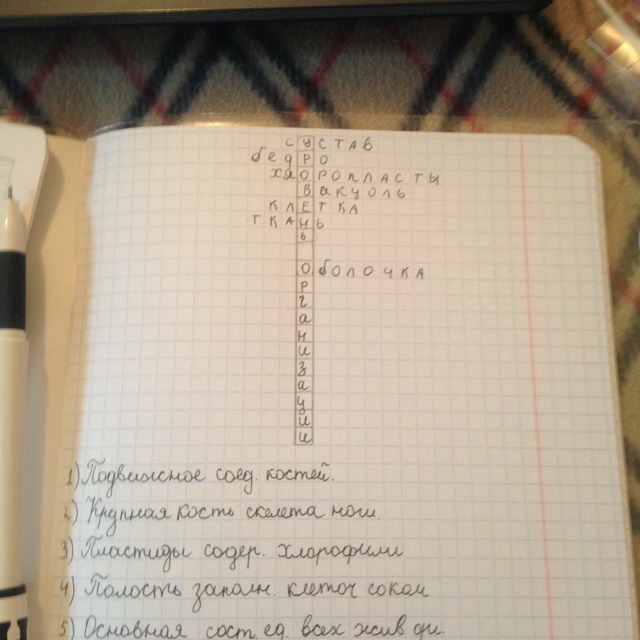 СУСТАВ
бедРО
хлОРОПЛАСТЫ
ВАКУОЛЬ
КЛЕТКА
ТКАНЬ
ь
ОбОЛОЧКА
р
г
а
н
и
з
а
ц
и
и
1) Подвижное соед. костей.
2) Крупная кость скелета ноги.
3) Пластиды содер. хлорофилл
4) Полость заполн. клеточ соком
5) Основная сост. ед. всех жив